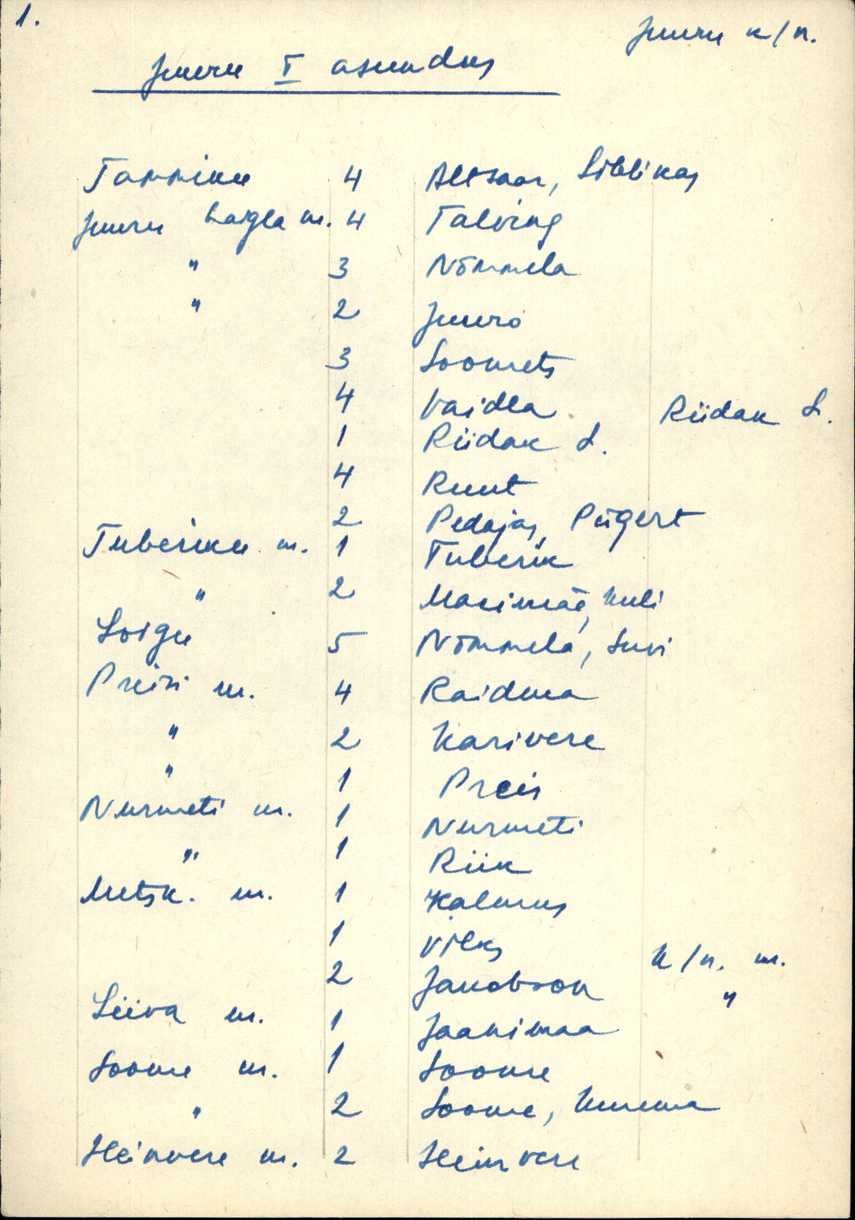 1.
Juuru k/n.
Juuru I asundus
Tammiku 4 Altsaar, Siblikas
Juuru haigla m. 4 Talving
" 3 Nõmmela
" 2 Juuro
3 Soomets
4 Vaidla Riidak L.
1 Riidak L.
4 Ruut
2 Pedajas, Piigert
Tuberiku m. 1 Tuberik
" 2 Marimäe, Kuli
Loigu 5 Nõmmela, Suvi
Preisi m. 4 Raidma
" 2 Karivere
" 1 Preis
Nurmeti m. 1 Nurmeti
" 1 Riik
Metsk. m. 1 Kalmus
1 Vilks k/n. m.
2 Jakobson "
Liiva m. 1 Jaakimaa
Soome m. 1 Soome
" 2 Soome, Kurema
Heinvere m. 2 Heinvere